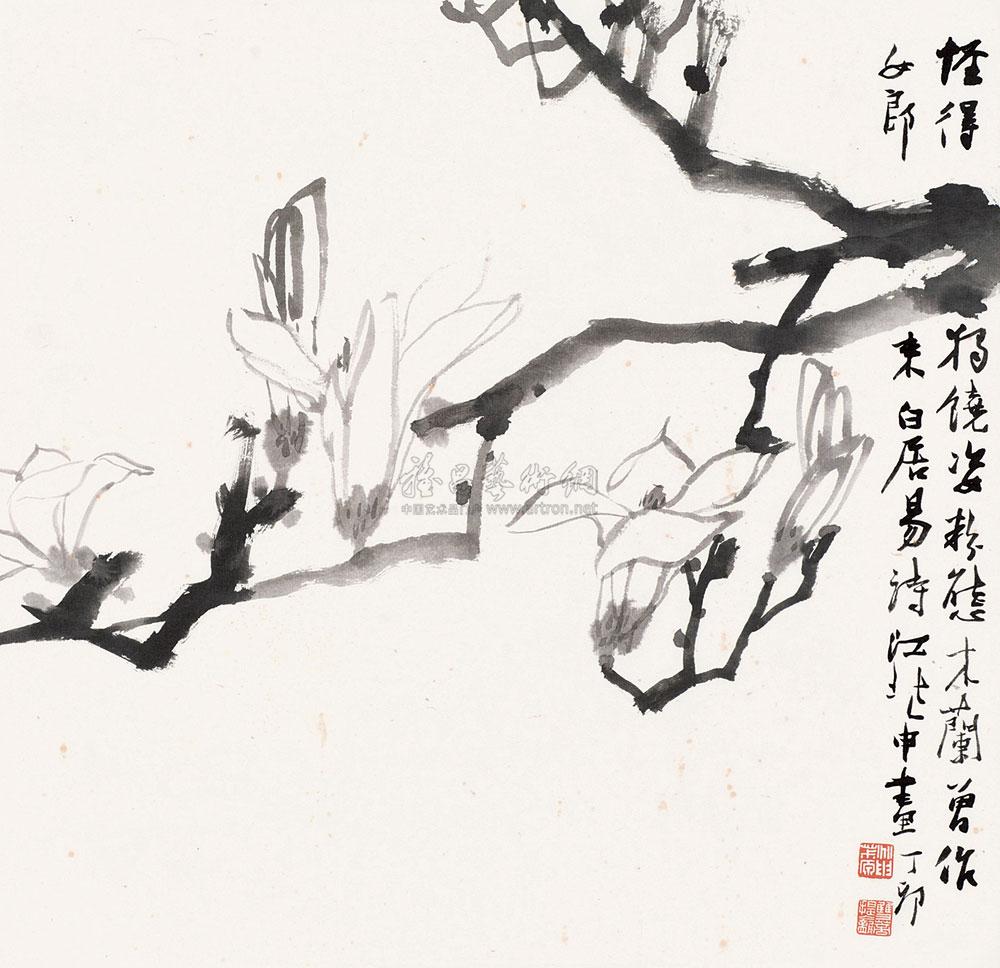 怪得独饶姿粉態木蘭曽作
女郎来白居易詩江北申畫丁卯
雅昌藝術網
中国艺术品门户 www.artron.net